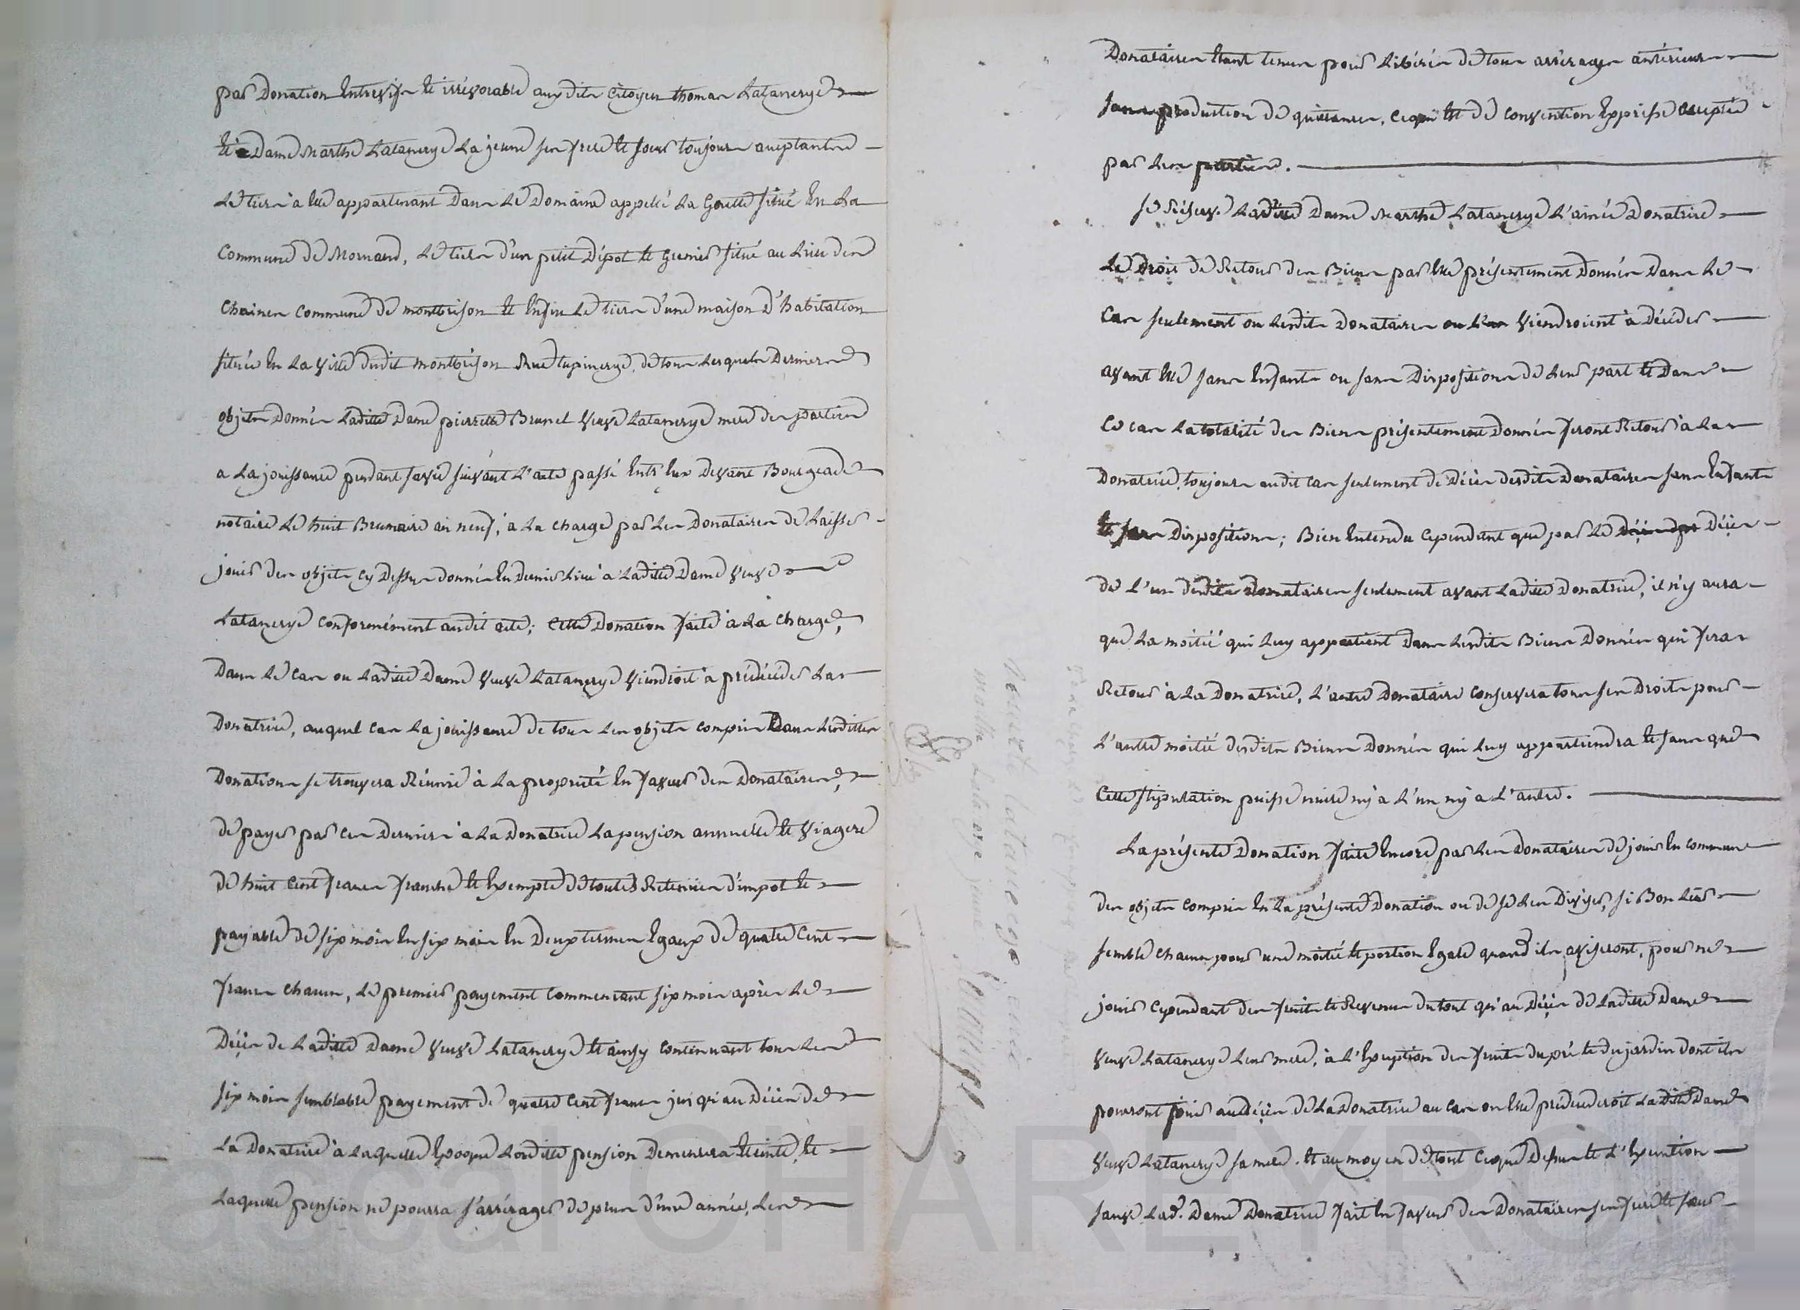 par Donation Entrevifs et irrévocable auxdits Citoyen thomas Latanerye
et Dame Marthe Latanerye La jeune ses frere et soeur toujours acceptants
Le tiers à Elle appartenant Dans Le Domaine appellé La Goutte situé En La
Commune de Mornand, Le tiers d'un petit Dépot et Grenier situé au Lieu des
Chaines Commune de montbrison et Enfin Le tiers d'une maison d'habitation
située En La Ville dudit montbrison Rue tupinerye, de tous Lesquels Derniers
objets Donnés Laditte Dame pierrette Brunel Veuve Latanerye mere des parties
a La jouissance pendant sa vie suivant L'acte passé Entr'Eux Devant Bourgeade
notaire Le huit Brumaire an neuf, à La charge par Les Donataires de Laisser
jouir des objets cy Dessus donnés En Dernier Lieu à Laditte Dame Veuve
Latanerye Conformément audit acte; Cette Donation faite à La Charge,
Dans Le cas ou Laditte Dame Veuve Latanerye Viendroit à prédécéder La
Donatrice, auquel cas La jouissance de tous Les objets compris Dans Lesdittes
Donations se trouvera Réunie à La propriété En faveur des Donataires,
de payer par ces Derniers à La Donatrice La pension annuelle et Viagere
de huit Cent francs franche et Exempte de toutes Retenües d'impot et
payable de six mois En six mois En Deux termes Egaux de quatre Cent
francs chacun, Le premier payement Commencant six mois après Le
Décès de Laditte Dame Veuve Latanerye et ainsy continuant tous Les
six mois semblable payement de quatre Cent francs jusqu'au Décès de
La Donatrice à Laquelle Epoque Laditte pension Demeurera Eteinte, et
Laquelle pension ne pourra s'arrérager de plus d'une année, Les
Donataires Etant tenus pour Libérés de tous arrérages antérieurs
sans production de quittances, Ce qui Est de Convention Expresse acceptée
par Les parties.
se Réserve Laditte Dame Marthe Latanerye L'ainée Donatrice
Le Droit de Retour des Biens par Elle présentement Donnés Dans Le
Cas seulement ou Lesdits Donataires Viendroient à Décéder
avant Elle sans Enfants ou sans Dispositions de Leur part et Dans
Ce cas La totalité des Biens présentement Donnés feront Retour à La
Donatrice, toujours audit Cas seulement de Décès desdits Donataires sans Enfants
et sans Dispositions; Bien Entendu Cependant que par Le Décès
de L'un desdits Donataires seulement avant Laditte Donatrice, il n'y aura
que La moitié qui Luy appartient Dans Lesdits Biens Donnés qui fera
Retour à La Donatrice, L'autre Donataire conservera tous ses Droits pour
L'autre moitié desdits Biens Donnés qui Luy appartiendra et sans que
Cette stipulation puisse nuire ny à L'un ny à L'autre.
La présente Donation faite Encore par Les Donataires de jouir En commun
des objets Compris En La présente Donation ou de se Les Diviser, si Bon Leur
semble chacun pour une moitié et portion Egale quand ils aviseront, pour ne
jouir Cependant des fruits et Revenus du tout qu'au Décès de Laditte Dame
Veuve Latanerye Leur mere, à L'Exception des fruits du pré et du jardin dont ils
pourront jouir au Décès de La Donatrice au cas ou Elle prédécéderoit Laditte Dame
Veuve Latanerye sa mere. Et au moyen de tout Ceque Dessus et L'Exécution
sauve Lad. Dame Donatrice fait En faveur des Donataires ses frere et soeur
Pascal CHAREYRON